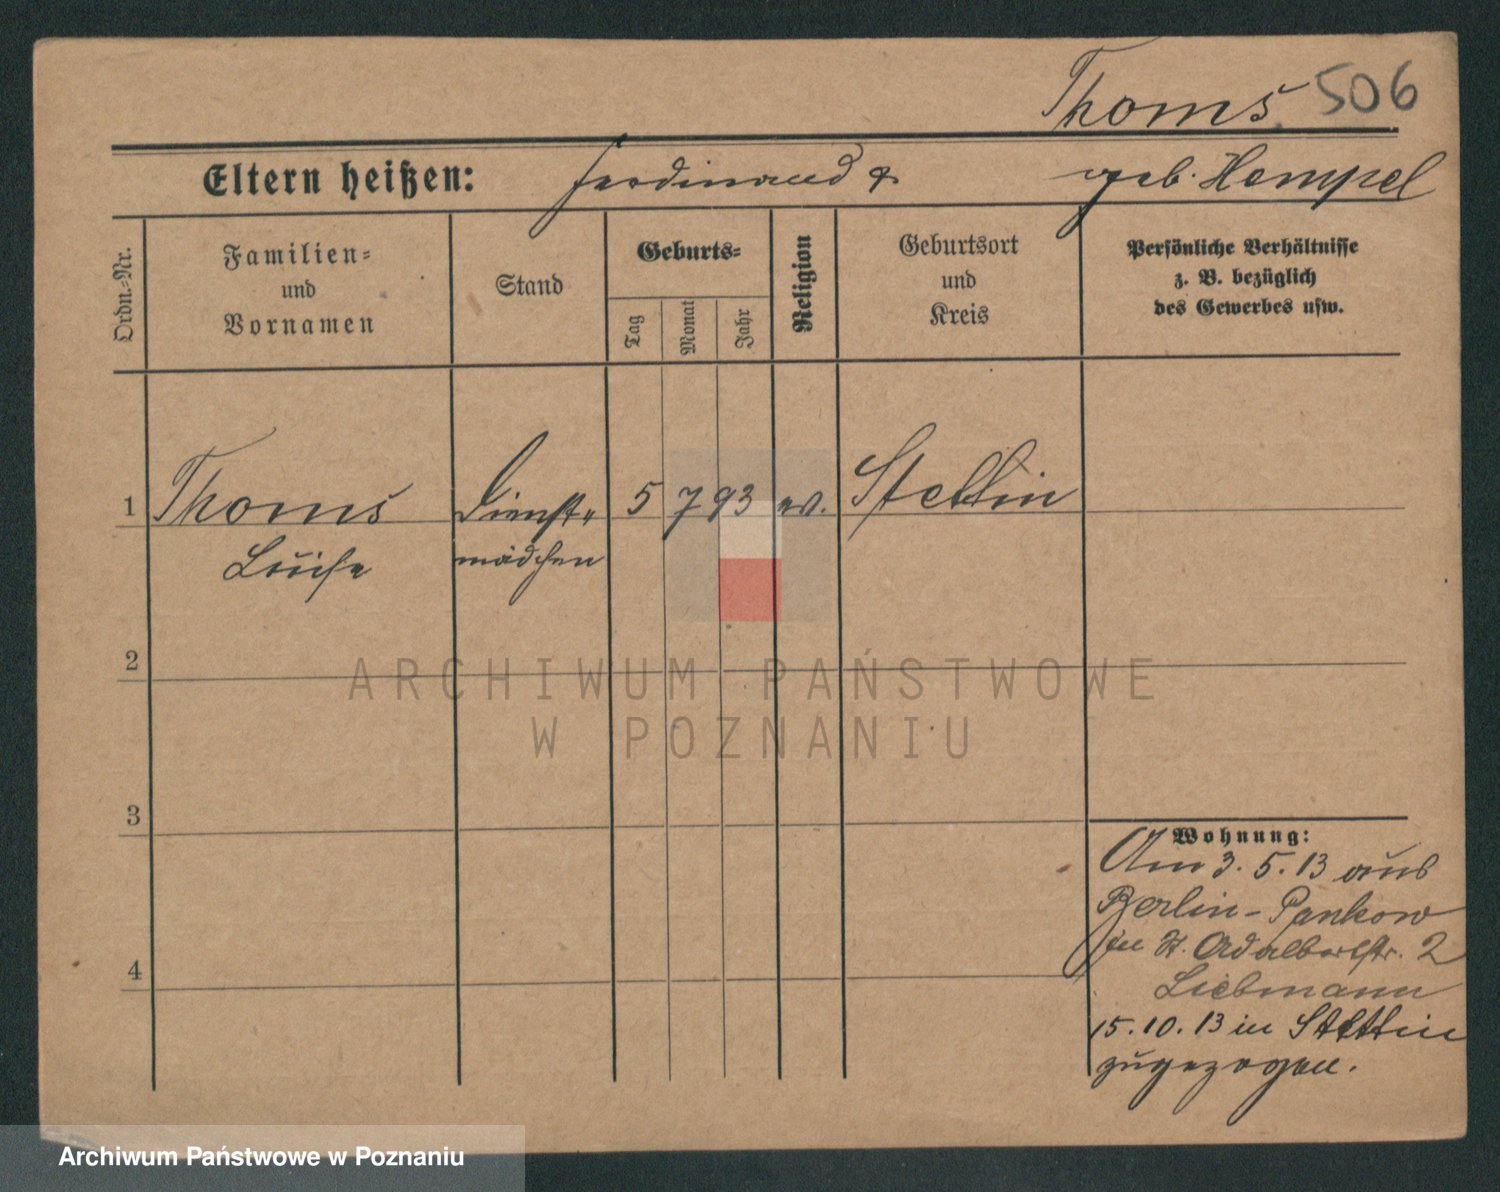 Thoms. 506
Eltern heißen: Ferdinand & geb. Hempel
Ordn.-Nr.
Familien-
und
Vornamen
Stand
Geburts-
Tag
Monat
Jahr
Religion
Geburtsort
und
Kreis
Persönliche Verhältnisse
z. B. bezüglich
des Gewerbes usw.
1 Thoms Dienst- 5 7 93 ev. Stettin
Luise mädchen
2
ARCHIWUM PAŃSTWOWE
W POZNANIU
3
4
Wohnung:
Am 3. 5. 13 aus
Berlin-Pankow
St. Adalbertstr. 2
Liebmann
15. 10. 13 in Stettin
zugezogen.
Archiwum Państwowe w Poznaniu